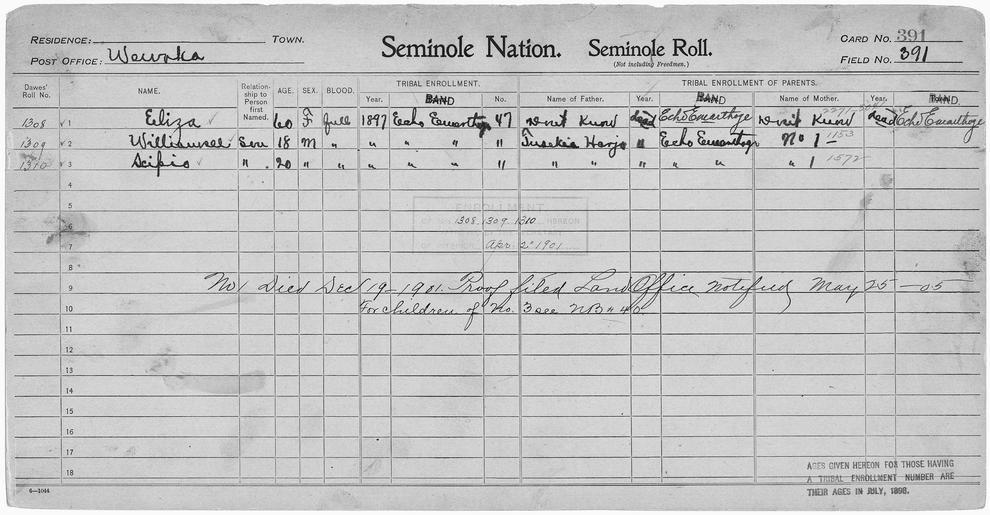 RESIDENCE: TOWN. Seminole Nation. Seminole Roll. CARD NO. 391
POST OFFICE: Wewoka (Not including Freedmen.) FIELD NO. 391
Dawes' Roll No. NAME. Relationship to Person first Named. AGE. SEX. BLOOD. TRIBAL ENROLLMENT. TRIBAL ENROLLMENT OF PARENTS.
Year. BAND No. Name of Father. Year. BAND Name of Mother. Year. BAND
1308 1 Eliza 60 F full 1897 Echo Emarthoge 47 Don't Know dead Echo Emarthoge Don't Know dead Echo Emarthoge
1309 2 Williamsee Son 18 M " " " " " Tuskia Harjo " Echo Emarthoge No 1 1153
1310 3 Scipio " 20 " " " " " " " " " " " " 1 1572
4
5
ENROLLMENT
6 1308 1309 1310 HEREON
7 Apr 2 1901
8
9 No 1 Died Dec 19-1901. Proof filed Land Office Notified May 25-05
10 For children of No. 3 see NB # 40
11
12
13
14
15
16
17
18
AGES GIVEN HEREON FOR THOSE HAVING
A TRIBAL ENROLLMENT NUMBER ARE
THEIR AGES IN JULY, 1898.
6-1044